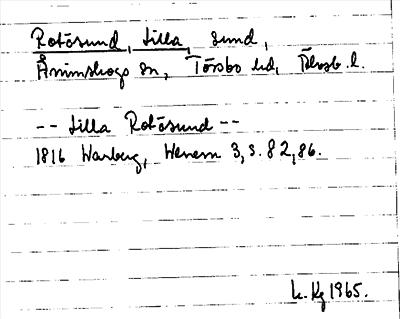 Rotösund, Lilla, sund,
Ånimskogs sn, Tössbo hd, Älvsb. l.
-- Lilla Rotösund --
1816 Warberg, Wenern 3, s. 82, 86.
k. Kg 1965.